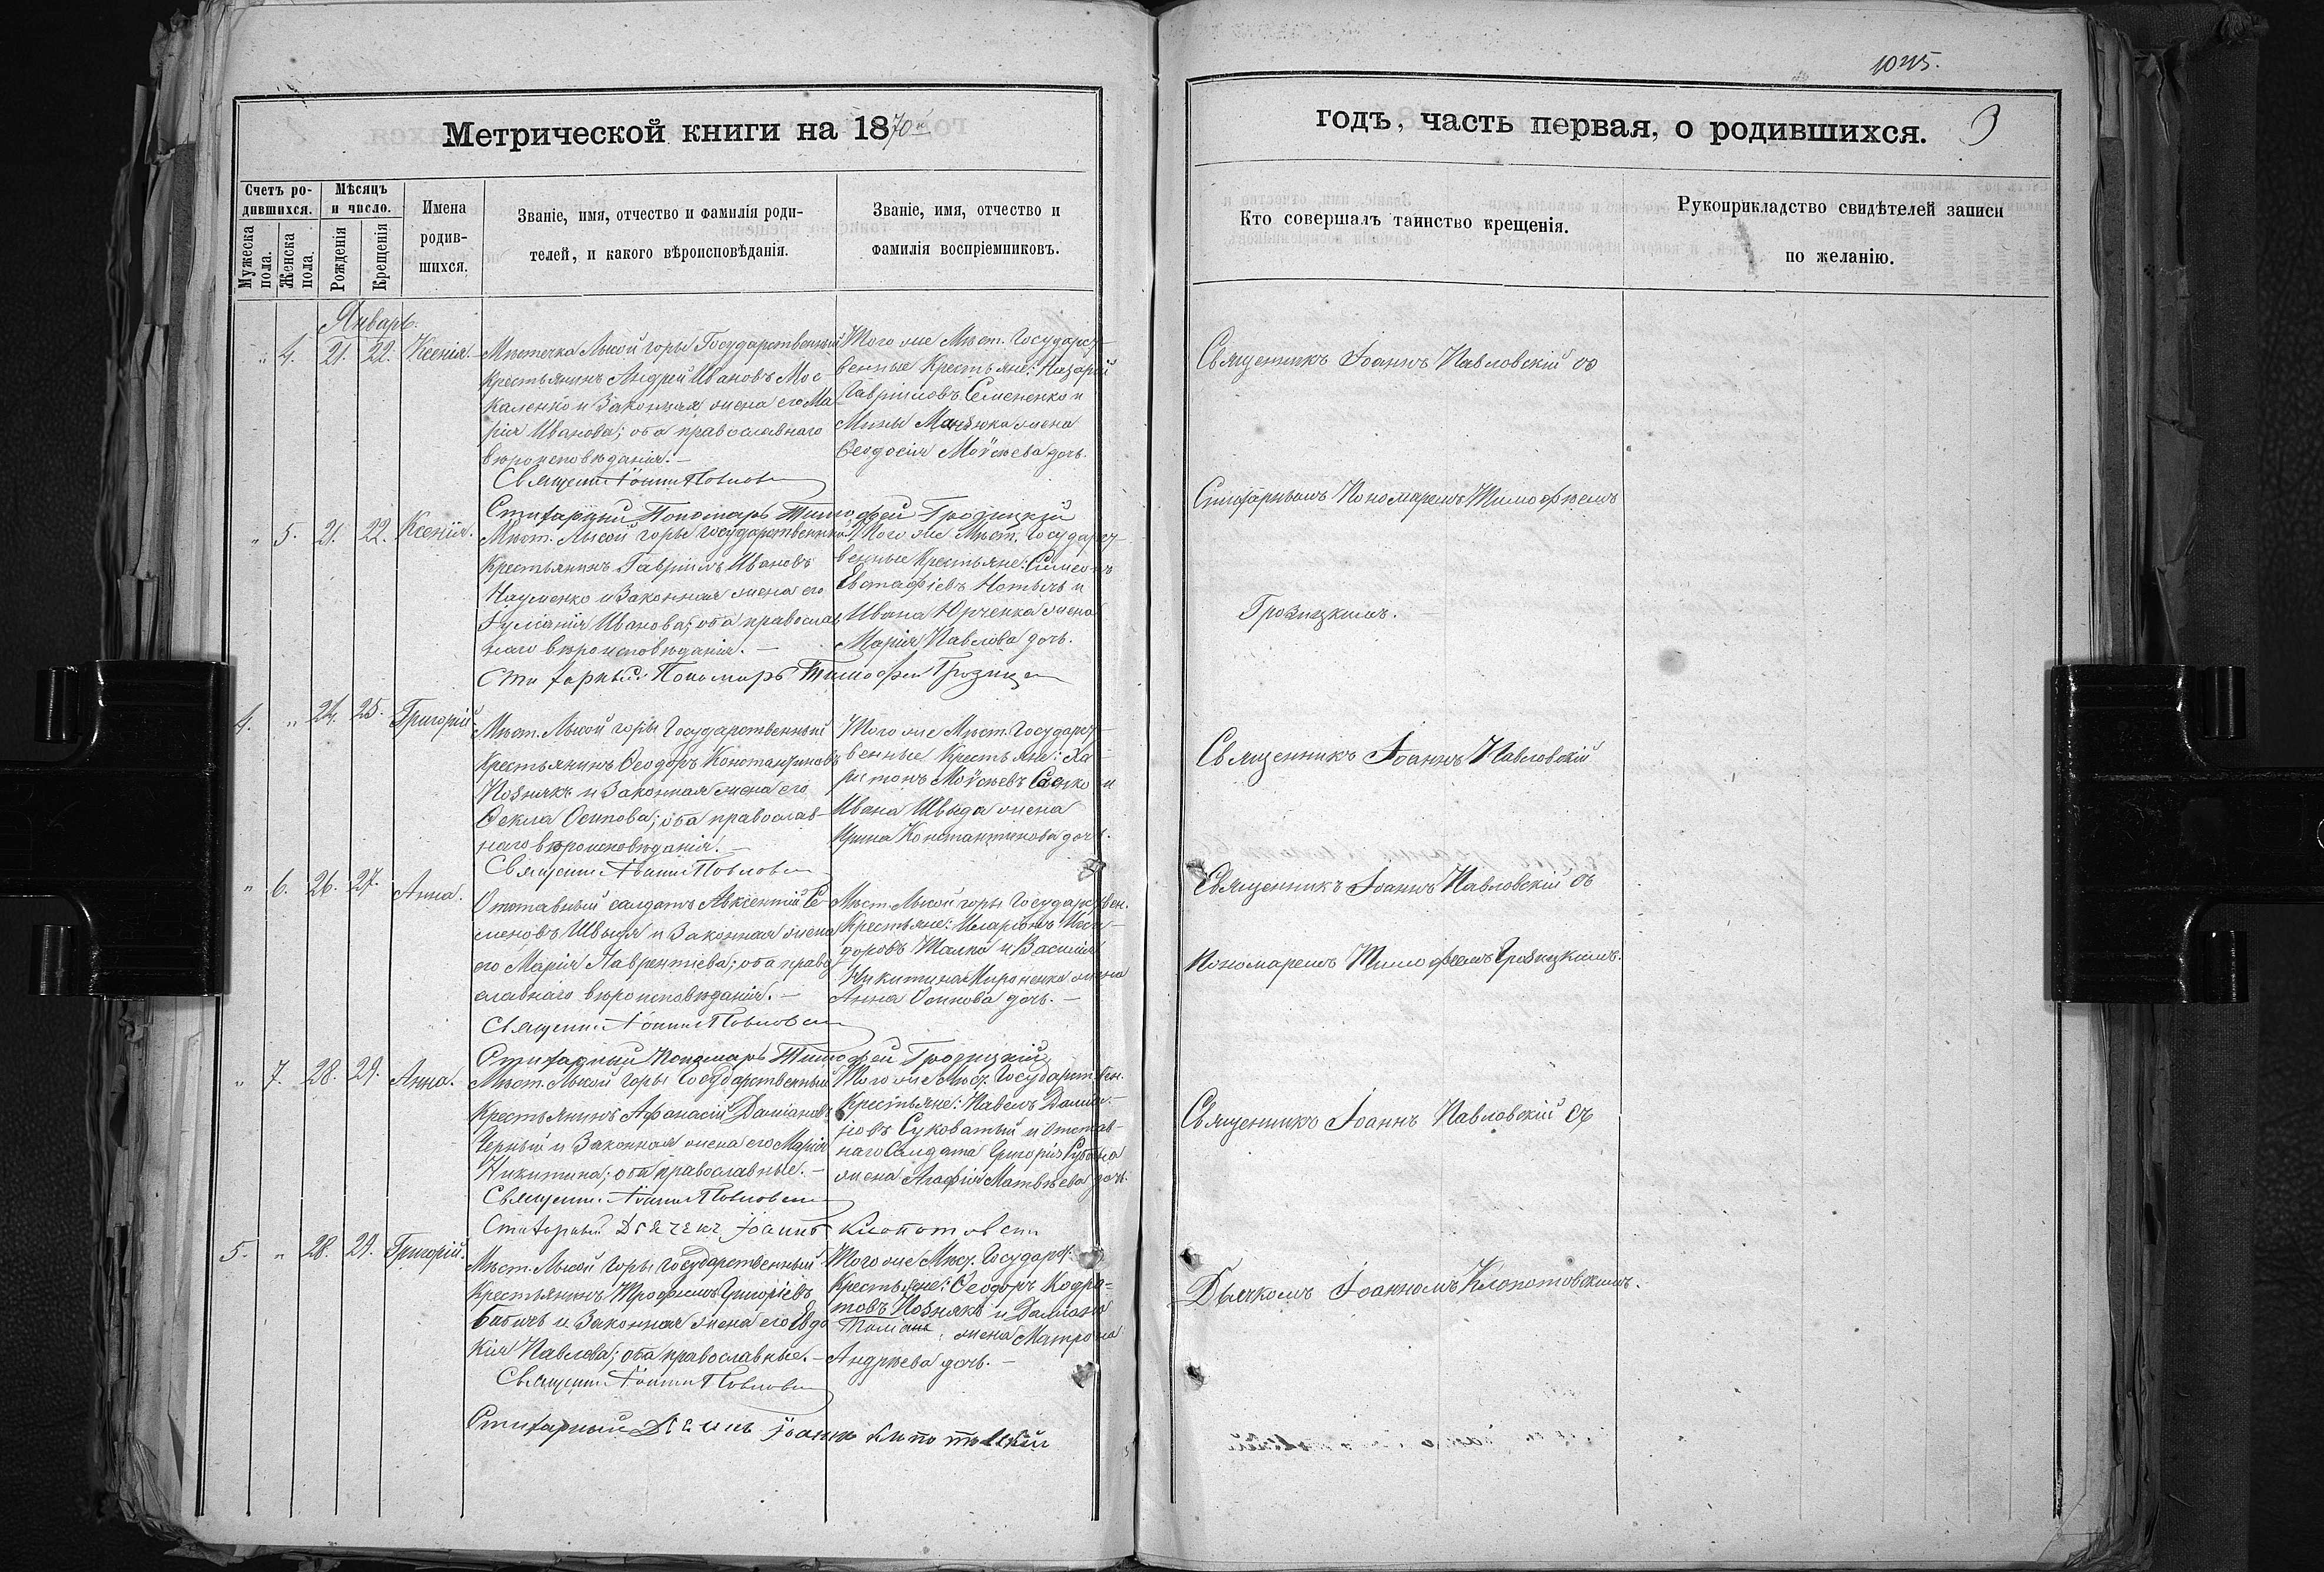 Метрической книги на 1870й
Счетъ ро-
дившихся.
Мужеска
пола.
Женска
пола.
Мѣсяцъ
и число.
Рожденія
Крещенія
Имена
родив-
шихся.
Званіе, имя, отчество и фамилія роди-
телей, и какого вѣроисповѣданія.
Званіе, имя, отчество и
фамилія воспріемниковъ.
Январь.
" 4. 21. 22. Ксенія.
Мѣстечка Лысой горы Государственный
Крестьянинъ Андрей Ивановъ Мос
каленко и Законная жена его Ма
рія Иванова; оба православнаго
вѣроисповѣданія. —
Того же Мѣст. Государст-
венные Крестьяне: Назарій
Гавріиловъ Семененко и
Мины жена
Ѳеодосія Моѵсѣева дочь.
Священ Іоаннъ Павловс
Стихарный Пономарь Тимофей Грозицкій
" 5. 21. 22. Ксенія.
Мѣст. Лысой горы Государственный
Крестьянинъ Гавріилъ Ивановъ
Науменко и Законная жена его
Іуліанія Иванова; оба православ
наго вѣроисповѣданія. —
Того же Мѣст. Государст-
венные Крестьяне: Симеонъ
Евстафіевъ и
Ивана Юрченка жена
Марія Павлова дочь.
Стихарный Пономарь Тимофей Грозиц
4. " 24. 25. Григорій.
Мѣст. Лысой горы Государственный
Крестьянинъ Ѳеодоръ Константиновъ
Познякъ и Законная жена его
Ѳекла Осипова; оба православ-
наго вѣроисповѣданія. —
Того же Мѣст. Государст-
венные Крестьяне: Ха-
ритонъ Моѵсѣевъ и
Ивана Швыда жена
Ирина Константинова дочь.
Священ Іоаннъ Павловс
" 6. 26. 27. Анна.
Отставный салдатъ Авксентій Се-
меновъ Швыдя и Законная жена
его Марія Лаврентіева; оба право
славнаго вѣроисповѣданія. —
Мѣст. Лысой горы Государствен.
Крестьяне: Иларіонъ Иси-
доровъ и Василія
Никитина Мироненка жена
Анна Осипова дочь. —
Священ. Іоаннъ Павловс
Стихарный Пономарь Тимофей Грозицкій
" 7. 28. 29. Анна.
Мѣст. Лысой Горы Государственный
Крестьянинъ Афанасій Даміановъ
Черный и Законная жена его Марія
Никитина; оба православные. —
Того же Мѣст. Государствен.
Крестьяне: Павелъ Даміа-
новъ Суковатый и Отстав-
наго Салдата Григорія
жена Агафія Матвѣева дочь.
Священ. Іоаннъ Павловс
Стихарный Дьячекъ Іоаннъ Клопотовск
5. " 28. 29. Григорій.
Мѣст. Лысой Горы Государственный
Крестьянинъ Трофимъ Григоріевъ
Бабичъ и Законная жена его Евдо
кія Павлова; оба православные. —
Того же Мѣст. Государст.
Крестьяне: Ѳеодоръ Кодра-
товъ Познякъ и Даміана
жена Матрона
Андрѣева дочь. —
Священ. Іоаннъ Павловс
Стихарный Дьячекъ Іоаннъ Клопотовскій
1045.
годъ, часть первая, о родившихся. 3
Кто совершалъ таинство крещенія.
Рукоприкладство свидѣтелей записи
по желанію.
Священникъ Іоаннъ Павловскій со
Стихарнымъ Пономаремъ Тимофѣемъ
Грозицкимъ.
Священникъ Іоаннъ Павловскій
Священникъ Іоаннъ Павловскій съ
Пономаремъ Тимофѣемъ Грозицкимъ.
Священникъ Іоаннъ Павловскій съ
Дьячкомъ Іоанномъ Клопотовскимъ.